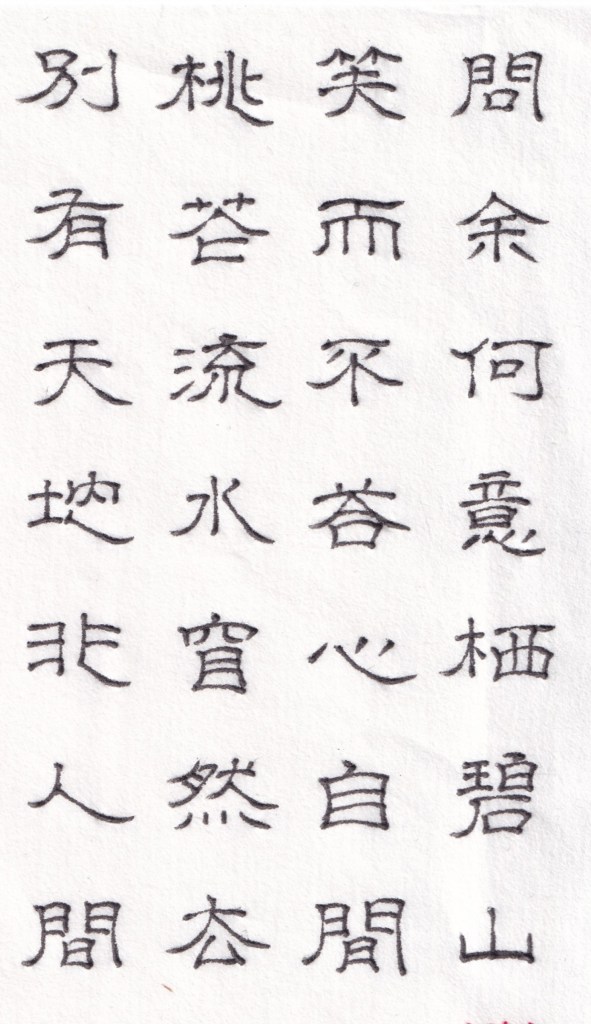 問余何意栖碧山
笑而不荅心自閒
桃花流水窅然去
別有天地非人間